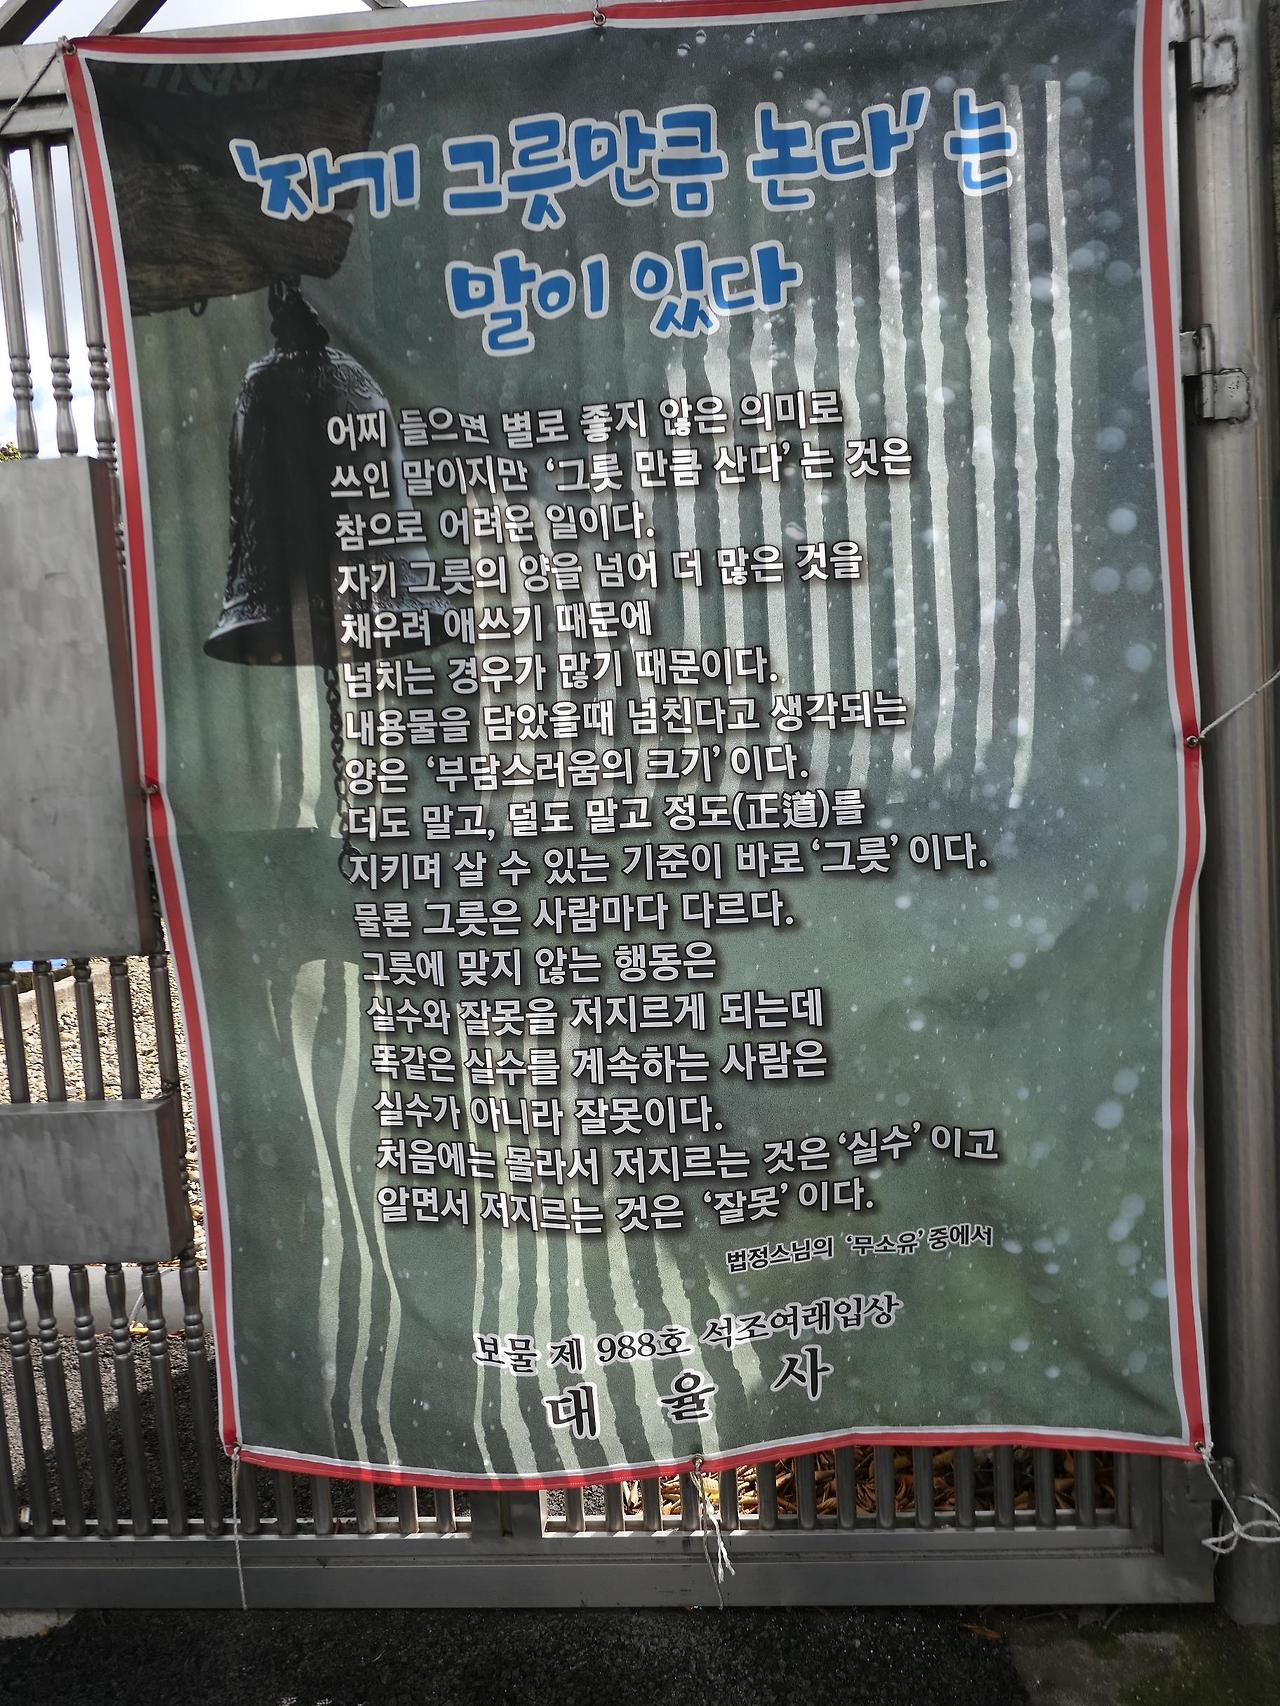 '자기 그릇만큼 논다' 는
말이 있다
어찌 들으면 별로 좋지 않은 의미로
쓰인 말이지만 '그릇 만큼 산다' 는 것은
참으로 어려운 일이다.
자기 그릇의 양을 넘어 더 많은 것을
채우려 애쓰기 때문에
넘치는 경우가 많기 때문이다.
내용물을 담았을때 넘친다고 생각되는
양은 '부담스러움의 크기' 이다.
더도 말고, 덜도 말고 정도(正道)를
지키며 살 수 있는 기준이 바로 '그릇' 이다.
물론 그릇은 사람마다 다르다.
그릇에 맞지 않는 행동은
실수와 잘못을 저지르게 되는데
똑같은 실수를 계속하는 사람은
실수가 아니라 잘못이다.
처음에는 몰라서 저지르는 것은 '실수' 이고
알면서 저지르는 것은 '잘못' 이다.
법정스님의 '무소유' 중에서
보물 제 988호 석조여래입상
대 율 사